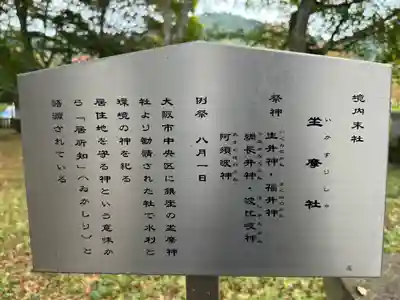 境内末社
いかすりしゃ
坐摩社
祭神
生井神・福井神
綱長井神・波比岐神
阿須波神
例祭 八月一日
大阪市中央区に鎮座の坐摩神
社より勧請された社で水利と
環境の神を祀る
居住地を守る神という意味か
ら「居所知」(ゐかしり)と
話源されている